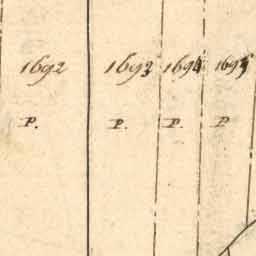 1692 1693 1694 1695
P. P. P. P